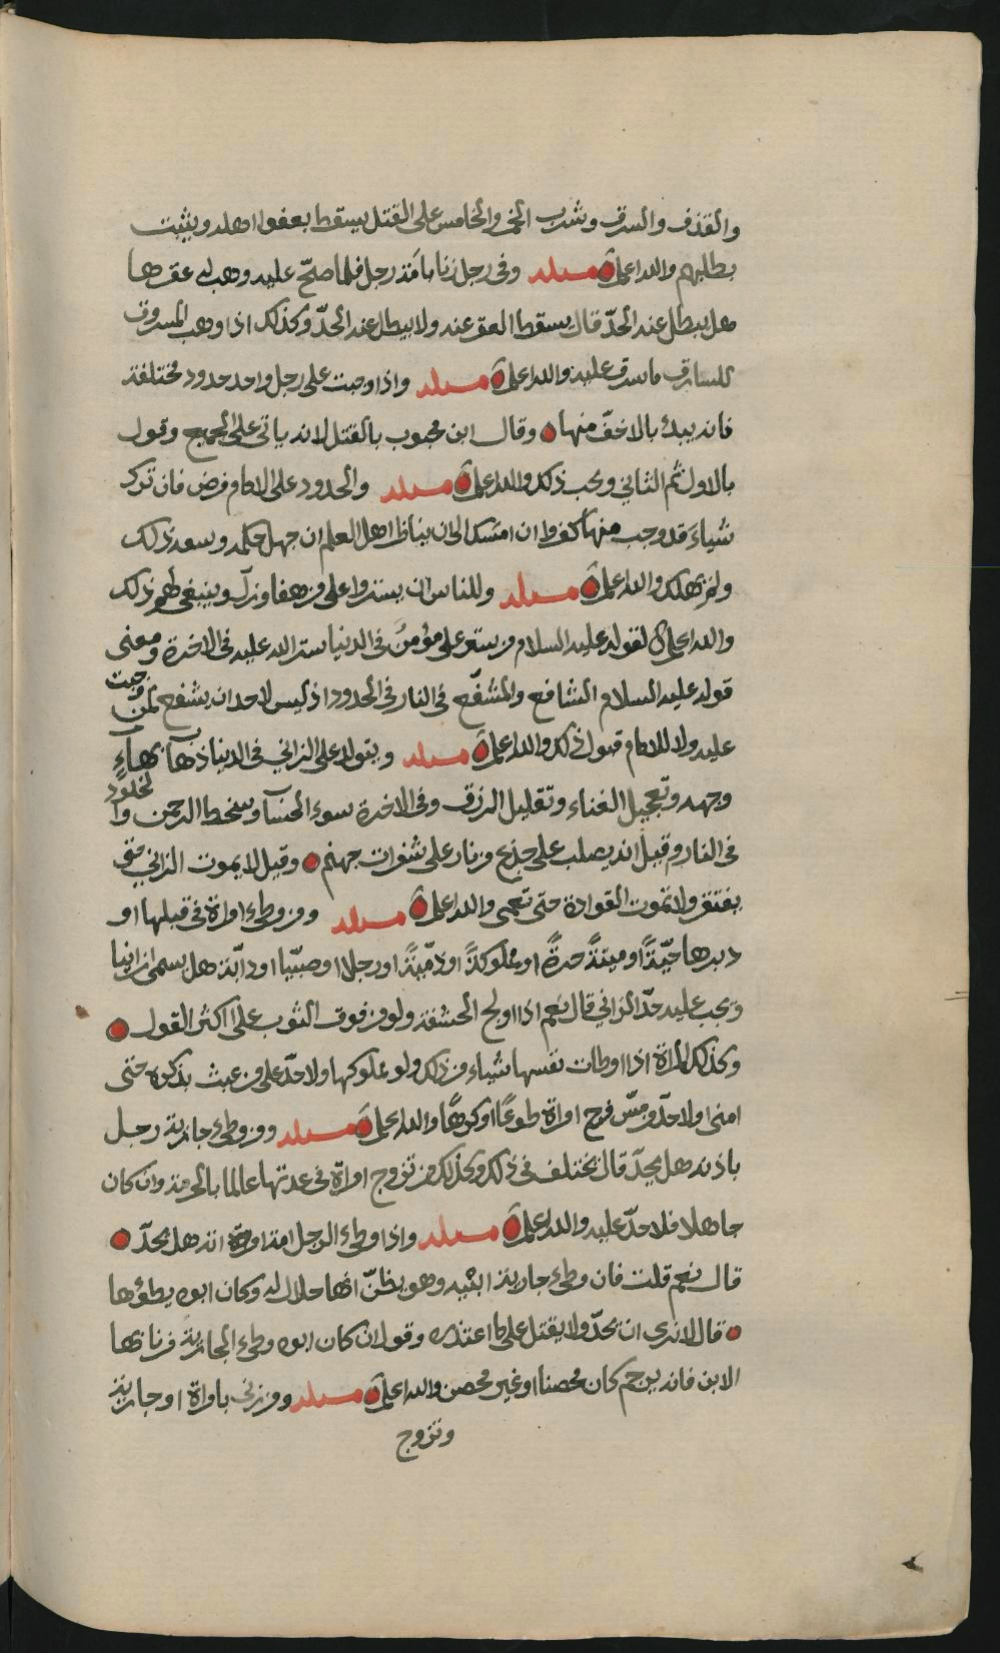 والقذف والسرق وشرب الخمر والخامس على القتل يسقط بعفو اهله ويثبت
بطلبهم والله اعلم مسئله وفي رجل زنا بامة رجل فلما صحّ عليه وهب له عقرها
هل يبطل عنه الحدّ قال يسقط العقر عنه ولا يبطل عنه الحدّ وكذلك اذا وهب المسروق
للسارق ما سرق عليه والله اعلم مسئله واذا وجبت على رجل واحد حدود مختلفة
فانه يبدأ بالاخفّ منها وقال ابن محبوب بالقتل لانه ياتي على الجميع وقول
بالاول ثم الثاني ويجب ذلك والله اعلم مسئله والحدود على الامام فرض فان ترك
شياء قد وجب منها كفر وان امسك الى ان يناظر اهل العلم ان جهل حكمه وسعه ذلك
ولم يهلك والله اعلم مسئله وللناس ان يستروا على من هفا وزلّ وينبغي لهم ذلك
والله اعلم لقوله عليه السلام من ستر على مؤمن في الدنيا ستر الله عليه في الاخرة ومعنى
قوله عليه السلام الشافع والمشفّع في النار في الحدود اذ ليس لاحد ان يشفع لمن وجبت
عليه ولا للامام قبول ذلك والله اعلم مسئله ويتولد على الزاني في الدنيا ذهاب بهاء
وجهه وتعجيل الفناء وتقليل الرزق وفي الاخرة سوء الحساب وسخط الرحمن والخلود
في النار وقيل انه يصلب على جذع من نار على شفرات جهنم وقيل لا يموت الزاني حتى
يفتقر ولا تموت القوادة حتى تعمى والله اعلم مسئله ومن وطىء امراة في قبلها او
دبرها حيّةً او ميتةً حرةً او مملوكةً او ذمّيةً او رجلا او صبيّا او دابّة هل يسمى زانيا
ويجب عليه حدّ الزاني قال نعم اذا اولج الحشفة ولو من فوق الثوب على اكثر القول
وكذلك المراة اذا اوطات نفسها شياء من ذلك ولو مملوكها ولا حدّ على من عبث بذكره حتى
امنى ولا حدّ من مسّ فرج امراة طوعًا او كرهًا والله اعلم مسئله ومن وطىء جارية رجل
باذنه هل يحدّ قال يختلف في ذلك وكذلك من تزوج امراة في عدتها عالما بالحرمة وان كان
جاهلا فلا حدّ عليه والله اعلم مسئله واذا وطىء الرجل امة امراته هل يحدّ
قال نعم قلت فان وطىء جارية ابيه وهو يظنّ انها حلال له وكان ابوه يطؤها
قال لا ندري انه يحدّ ولا يقتل على ما اعتذر وقول ان كان ابوه وطىء الجارية فزنا بها
الابن فانه يرجم كان محصنا او غير محصن والله اعلم مسئله ومن زنى بامراة او جارية
وتزوج